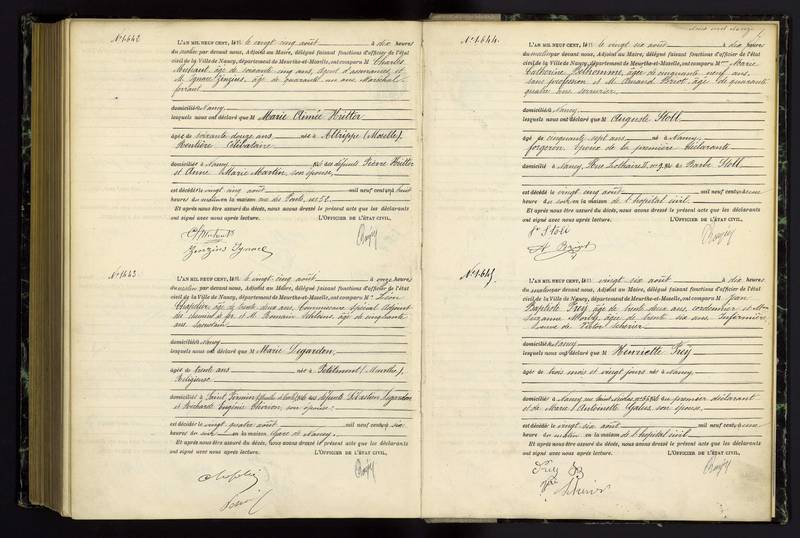 N° 1642
L'AN MIL NEUF CENT, le vingt cinq août à dix heures
du matin par devant nous, Adjoint au Maire, délégué faisant fonctions d'officier de l'état
civil de la Ville de Nancy, département de Meurthe-et-Moselle, ont comparu M Charles
âgé de soixante cinq ans, agent d'assurances et
M. Ignace Zinzius, âgé de quarante un ans Maréchal
ferrant
domicilié à Nancy
lesquels nous ont déclaré que M Marie Aimée Hutter
âgée de soixante douze ans née à Attrippe (Moselle),
Rentière Célibataire
domiciliée à Nancy des défunts Pierre Hutter
et Anne Marie Martin, son épouse
est décédée le vingt cinq août mil neuf cent à huit
heures du matin en la maison rue du Pont, n° 51
Et après nous être assuré du décès, nous avons dressé le présent acte que les déclarants
ont signé avec nous après lecture. L'OFFICIER DE L'ÉTAT CIVIL,
Zinzius Ignace
N° 1643
L'AN MIL NEUF CENT, le vingt-cinq août à onze heures
du matin par devant nous, Adjoint au Maire, délégué faisant fonctions d'officier de l'état
civil de la Ville de Nancy, département de Meurthe-et-Moselle, ont comparu M. Léon
Chapelier, âgé de trente deux ans, Commissaire spécial Adjoint
du chemin de fer et M. Romain âgé de cinquante
ans
domicilié à Nancy
lesquels nous ont déclaré que M Marie Legardon
âgée de trente ans née à Petitmont (Meurthe),
Religieuse
domiciliée à Saint Firmin des défunts Sébastien Legardon
et Eugénie Thouron, son épouse
est décédée le vingt quatre août mil neuf cent à six
heures du soir en la maison Gare de Nancy
Et après nous être assuré du décès, nous avons dressé le présent acte que les déclarants
ont signé avec nous après lecture. L'OFFICIER DE L'ÉTAT CIVIL,
Chapelier
N° 1644
L'AN MIL NEUF CENT, le vingt six août à dix heures
du matin par devant nous, Adjoint au Maire, délégué faisant fonctions d'officier de l'état
civil de la Ville de Nancy, département de Meurthe-et-Moselle, ont comparu M Marie
Catherine âgée de cinquante neuf ans,
sans profession et M. âgé de quarante
quatre ans serrurier
domicilié à Nancy
lesquels nous ont déclaré que M Auguste Stoll
âgé de cinquante sept ans né à Nancy
forgeron, époux de la première déclarante
domicilié à Nancy, Rue Lothaire II, n° 9, Stoll
est décédé le vingt cinq août mil neuf cent à onze
heures du soir en la maison de l'hôpital civil
Et après nous être assuré du décès, nous avons dressé le présent acte que les déclarants
ont signé avec nous après lecture. L'OFFICIER DE L'ÉTAT CIVIL,
Stoll
N° 1645
L'AN MIL NEUF CENT, vingt six août à dix heures
du matin par devant nous, Adjoint au Maire, délégué faisant fonctions d'officier de l'état
civil de la Ville de Nancy, département de Meurthe-et-Moselle, ont comparu M Jean
Baptiste Frey âgé de trente deux ans, cordonnier et
Suzanne âgée de trente six ans Infirmière
veuve de Victor Scherier
domicilié à Nancy
lesquels nous ont déclaré que M Henriette Frey
âgée de trois mois et vingt jours née à Nancy
domiciliée à Nancy du premier déclarant
et de Marie Antoinette son épouse
est décédée le vingt six août mil neuf cent à une
heure du matin en la maison de l'hôpital civil
Et après nous être assuré du décès, nous avons dressé le présent acte que les déclarants
ont signé avec nous après lecture. L'OFFICIER DE L'ÉTAT CIVIL,
Frey